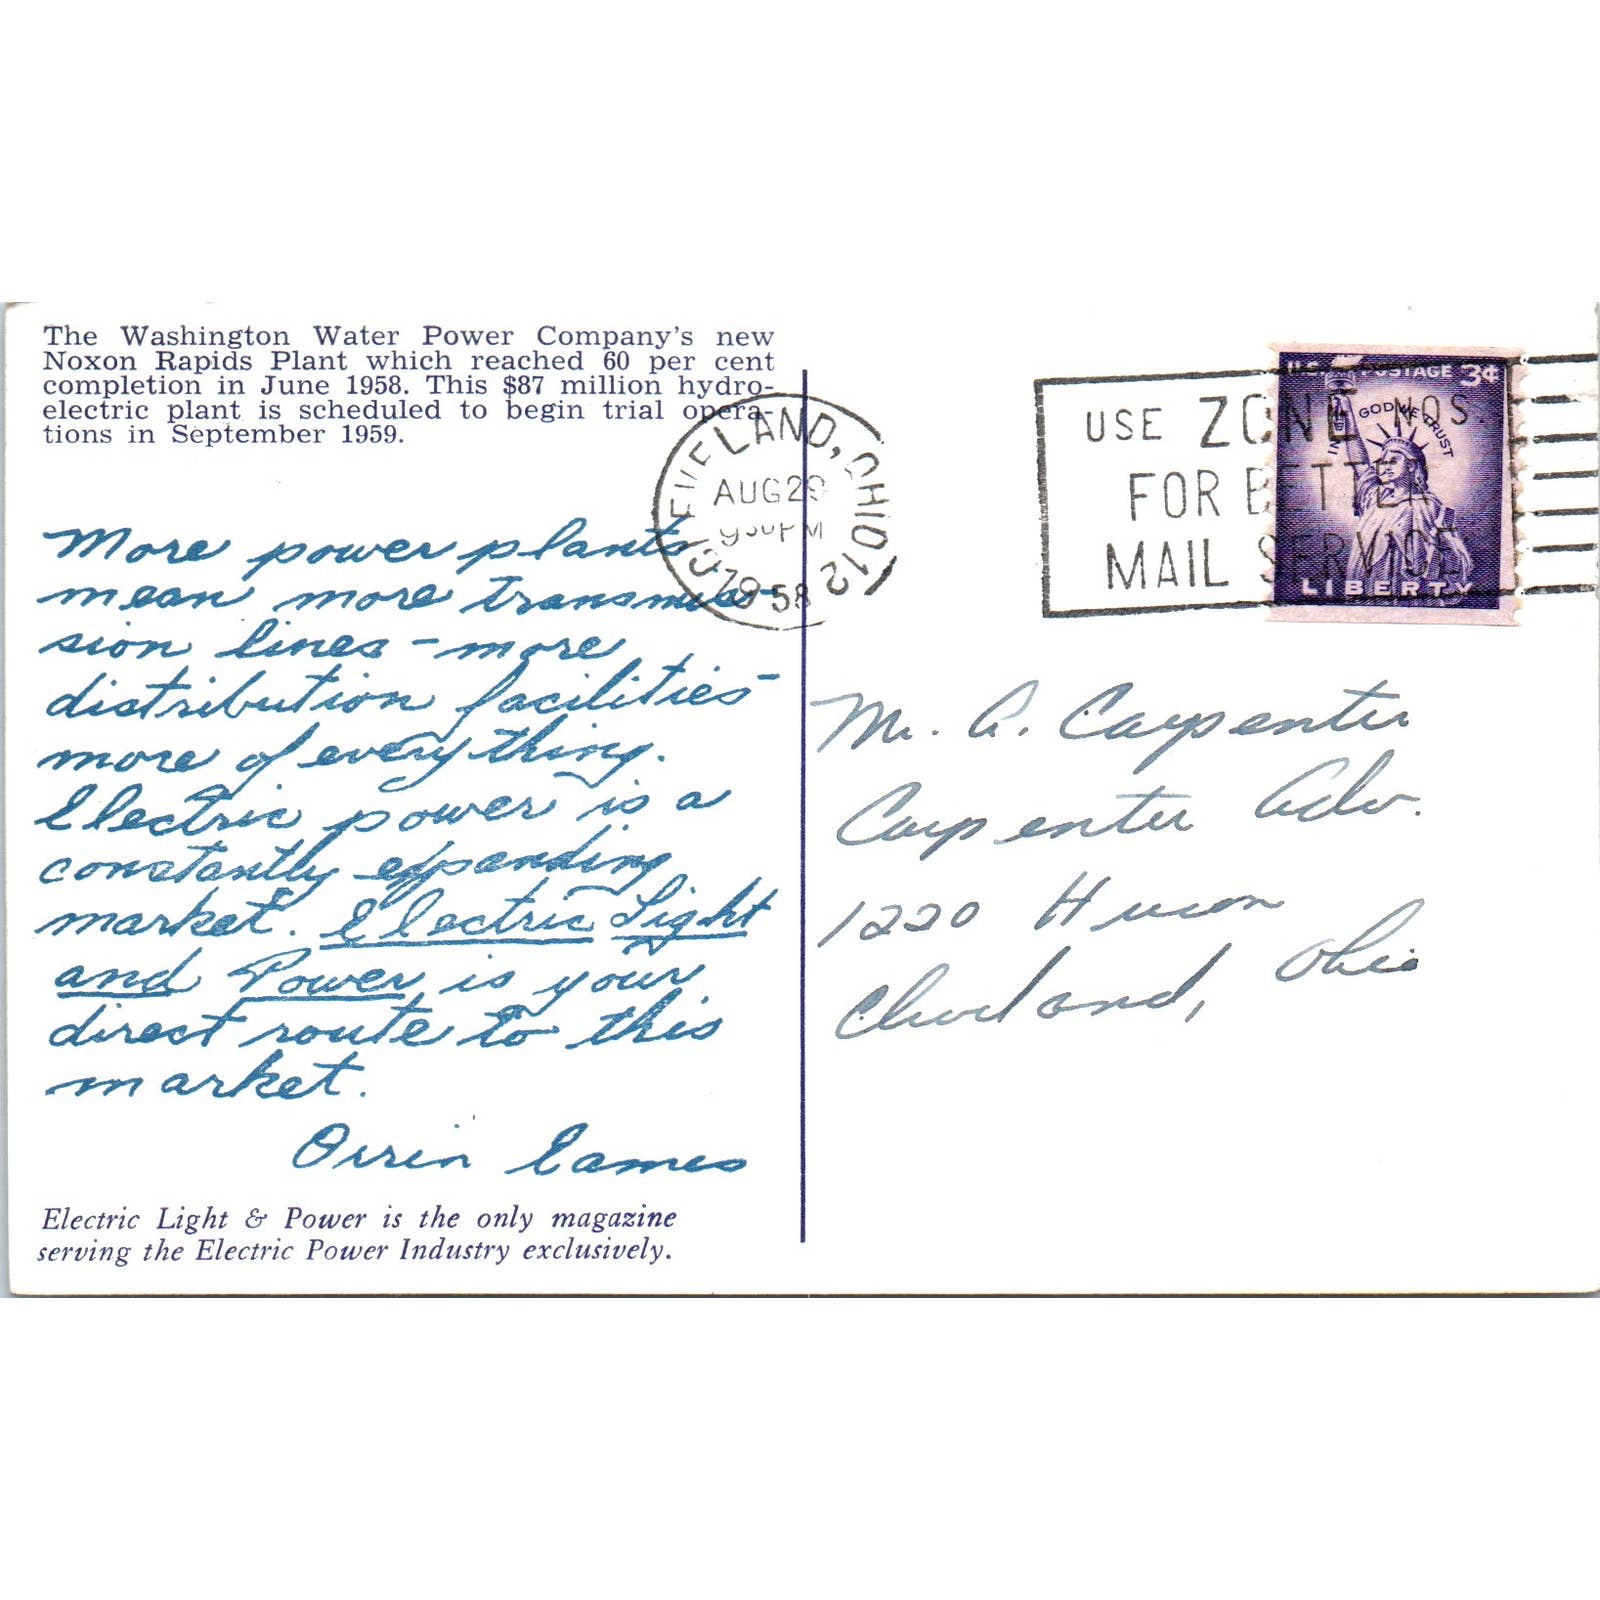 The Washington Water Power Company's new
Noxon Rapids Plant which reached 60 per cent
completion in June 1958. This $87 million hydro-
electric plant is scheduled to begin trial opera-
tions in September 1959.
More power plants
mean more transmis-
sion lines - more
distribution facilities -
more of everything.
Electric power is a
constantly expanding
market. Electric Light
and Power is your
direct route to this
market.
Orrin Eames
Electric Light & Power is the only magazine
serving the Electric Power Industry exclusively.
CLEVELAND, OHIO 12
AUG 29
930 PM
1958
USE ZONE NOS.
FOR BETTER
MAIL SERVICE
U.S. POSTAGE 3¢
IN GOD WE TRUST
LIBERTY
Mr. A. Carpenter
Carpenter Adv.
1220 Huron
Cleveland, Ohio